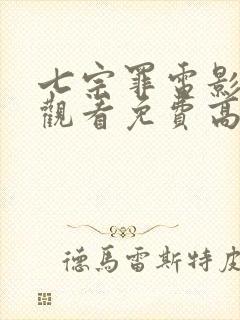 七宗罪雷影
觀看免費高
德馬雷斯特皮